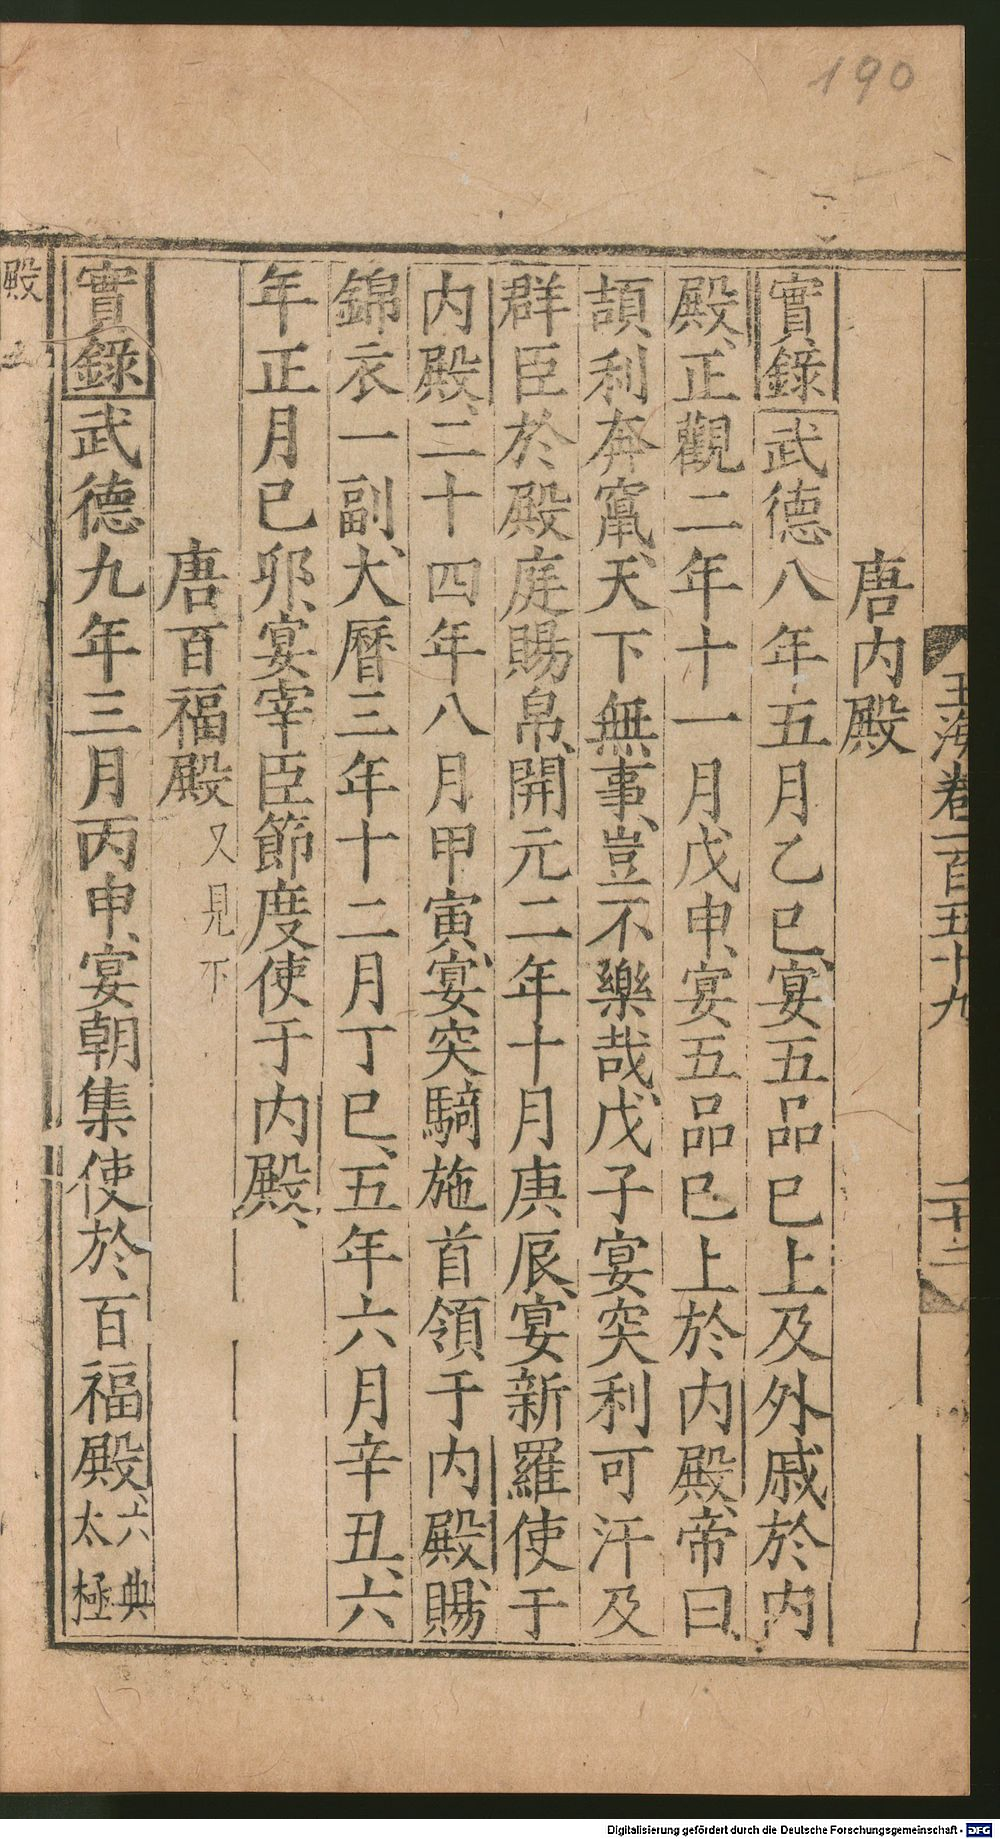 190
玉海卷一百五十九 二十二
唐内殿
實錄武德八年五月乙巳宴五品已上及外戚於内
殿、正觀二年十一月戊申、宴五品已上於内殿、帝曰、
頡利奔竄、天下無事、豈不樂哉、戊子宴突利可汗及
群臣於殿庭賜帛、開元二年十月庚辰、宴新羅使于
内殿、二十四年八月甲寅、宴突騎施首領于内殿、賜
錦衣一副、大曆三年十二月丁巳、五年六月辛丑、六
年正月己卯、宴宰臣節度使于内殿、
唐百福殿又見下
實錄武德九年三月丙申、宴朝集使於百福殿、六典
太極
殿
Digitalisierung gefördert durch die Deutsche Forschungsgemeinschaft - DFG